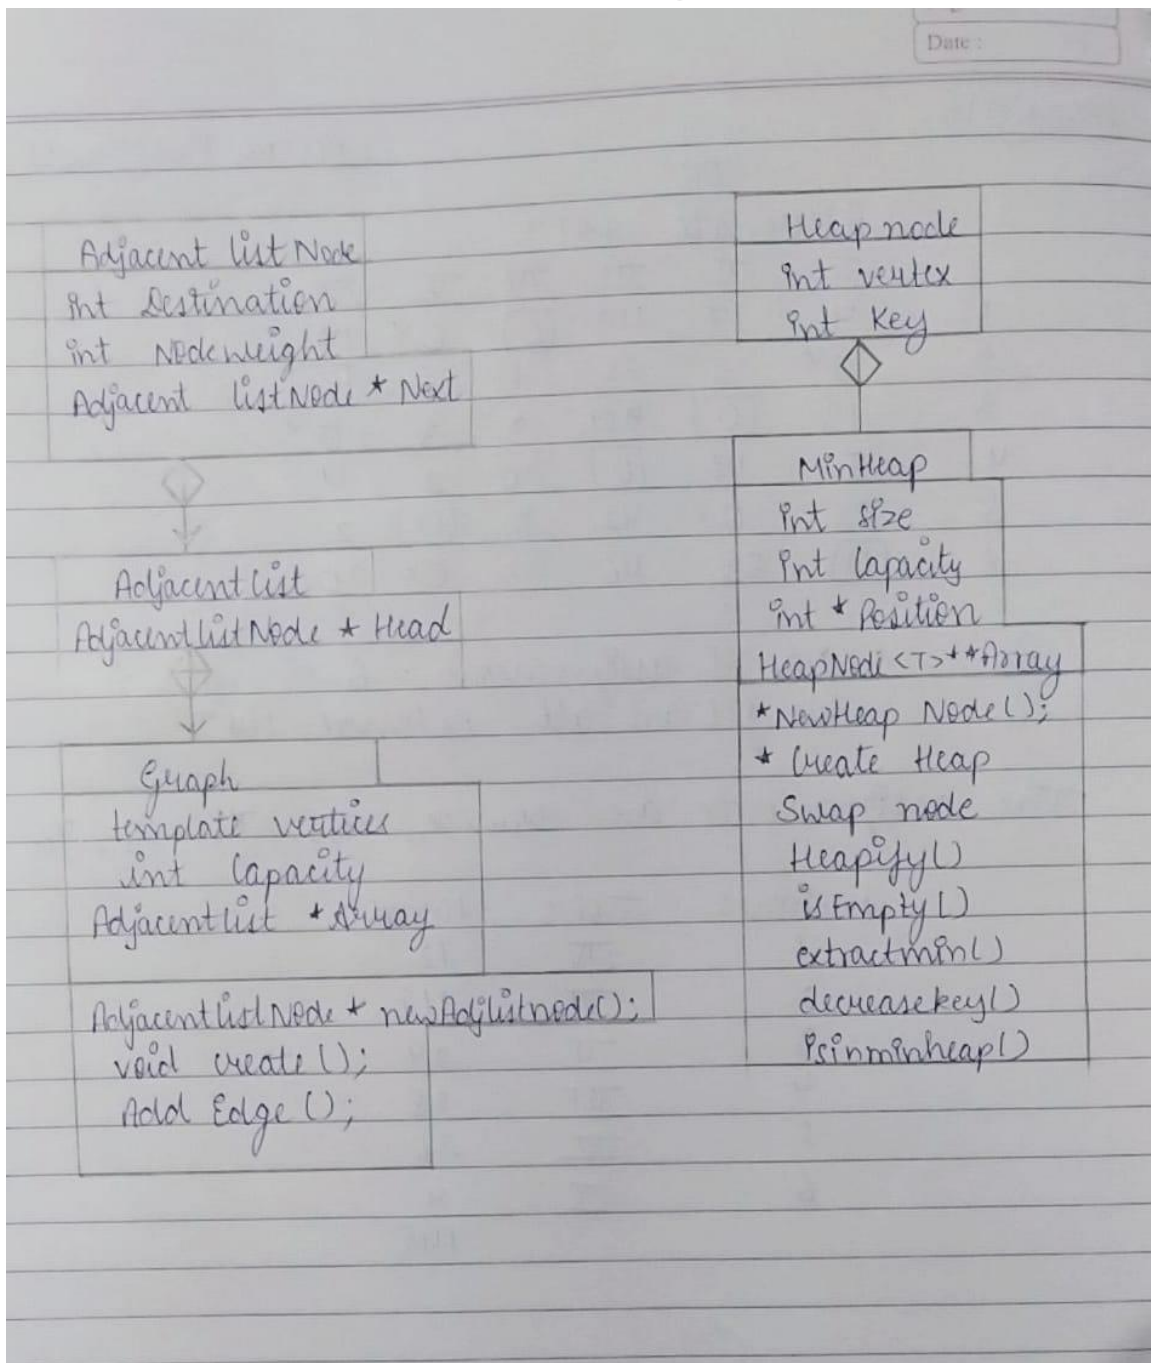 Date :
Adjacent list Node
int Destination
int Nodeweight
Adjacent listNode * Next
Adjacent list
AdjacentlistNode * Head
Graph
template vertices
int Capacity
Adjacentlist *Array
AdjacentlistNode * newAdjlistnode();
void create();
Add Edge();
Heap node
int vertex
int Key
MinHeap
int size
int Capacity
int * Position
HeapNode<T>**Array
*NewHeap Node();
* Create Heap
Swap node
Heapify()
isEmpty()
extractmin()
decreasekey()
isinminheap()